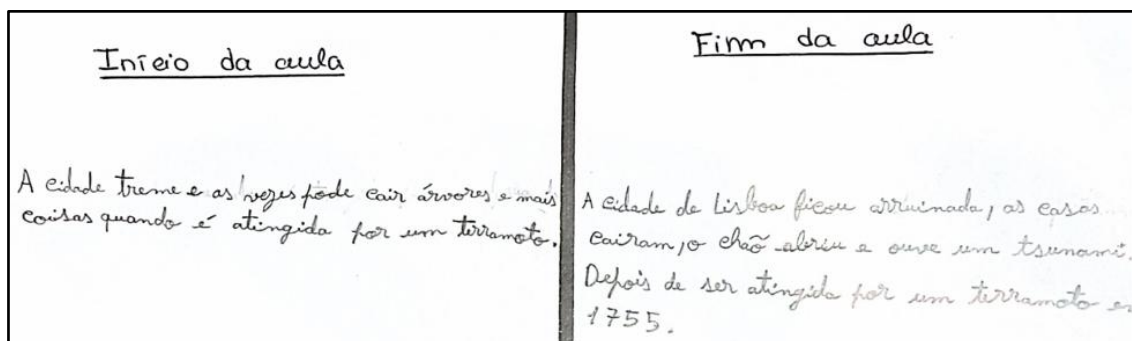 Início da aula
A cidade treme e as vezes pode cair árvores e mais
coisas quando é atingida por um tirramoto.
Fim da aula
A cidade de Lisboa ficou arruinada, as casas
cairam, o chão abriu e ouve um tsunami.
Depois de ser atingida por um terramoto em
1755.